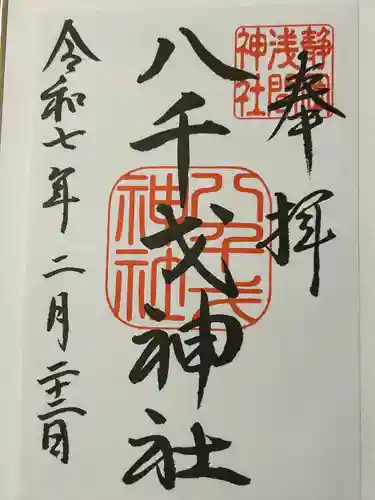 奉拝
静岡浅間神社
八千戈神社
八千戈神社
令和七年二月二十二日